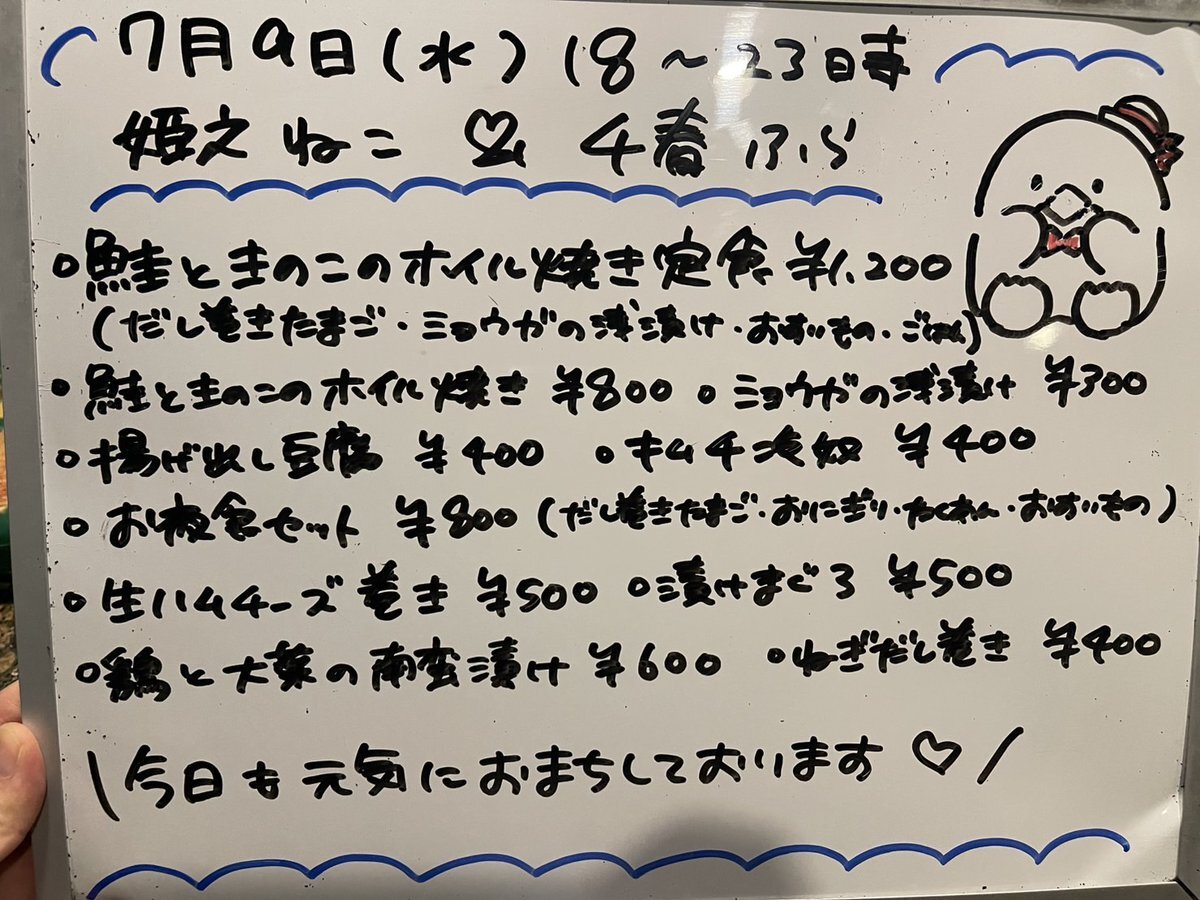 7月9日(水) 18~23時
姫之ねこ ♡ 千春ふら
○鮭ときのこのホイル焼き定食 ¥1,200
(だし巻きたまご・ミョウガの浅漬け・おすいもの・ごはん)
○鮭ときのこのホイル焼き ¥800 ○ミョウガの浅漬け ¥300
○揚げ出し豆腐 ¥400 ○キムチ冷奴 ¥400
○お夜食セット ¥800 (だし巻きたまご・おにぎり・たくあん・おすいもの)
○生ハムチーズ巻き ¥500 ○漬けまぐろ ¥500
○鶏と大葉の南蛮漬け ¥600 ○ねぎだし巻き ¥400
\今日も元気におまちしております♡/